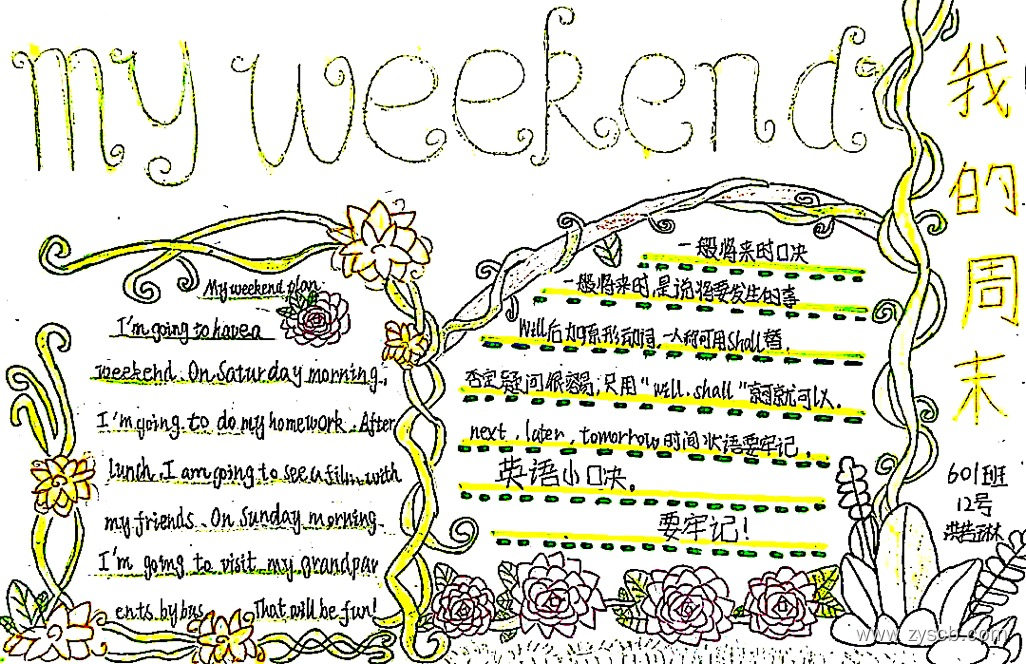 my weekend
My weekend plan
I'm going to have a
weekend. On Saturday morning.,
I'm going to do my homework. After
lunch, I am going to see a film with
my friends. On Sunday morning.
I'm going to visit my grandpar
ents by bus. That will be fun!
一般将来时口决
一般将来时,是说将要发生的事
Will后加原形动词,一人称可用shall替.
否定疑问很容易,只用"will, shall"就可以.
next, later, tomorrow时间状语要牢记.
英语小口决。
要牢记!
我的周末
601班
12号
www.zyscb.com